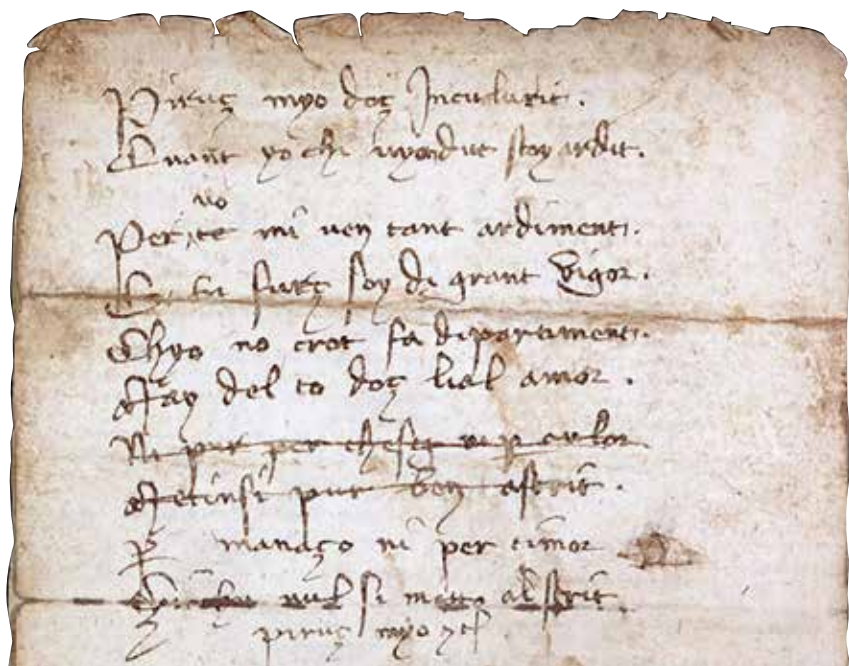 Piruç myo doç Inculurit.
Quant yo chi vyot dut stoy ardit.
vo
Per te mi ven tant ardiment.
E si furç soy di grant vigor.
Chyo no crot fa dipartiment.
May del to doç lial amor.
Ni pur per
Metinsi pur ben astrit.
p manaço ni per timor
vul si metti al strit.
piruç myo etc